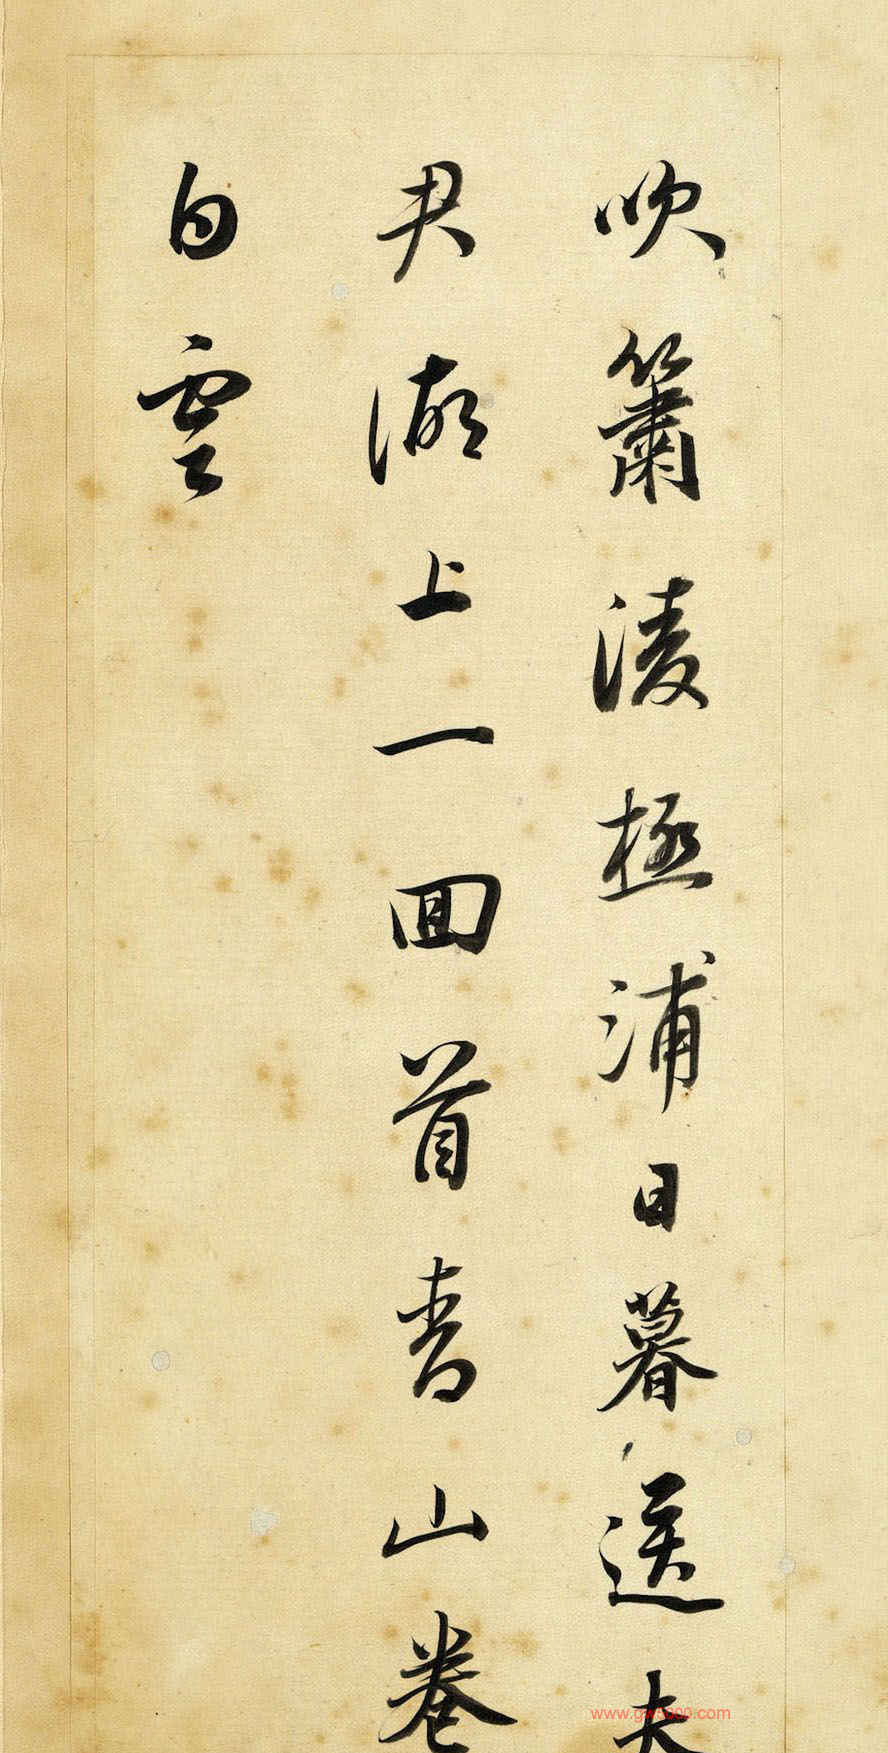 吹簫凌極浦日暮送夫
君湖上一回首青山卷
白雲
www.gw5000.com